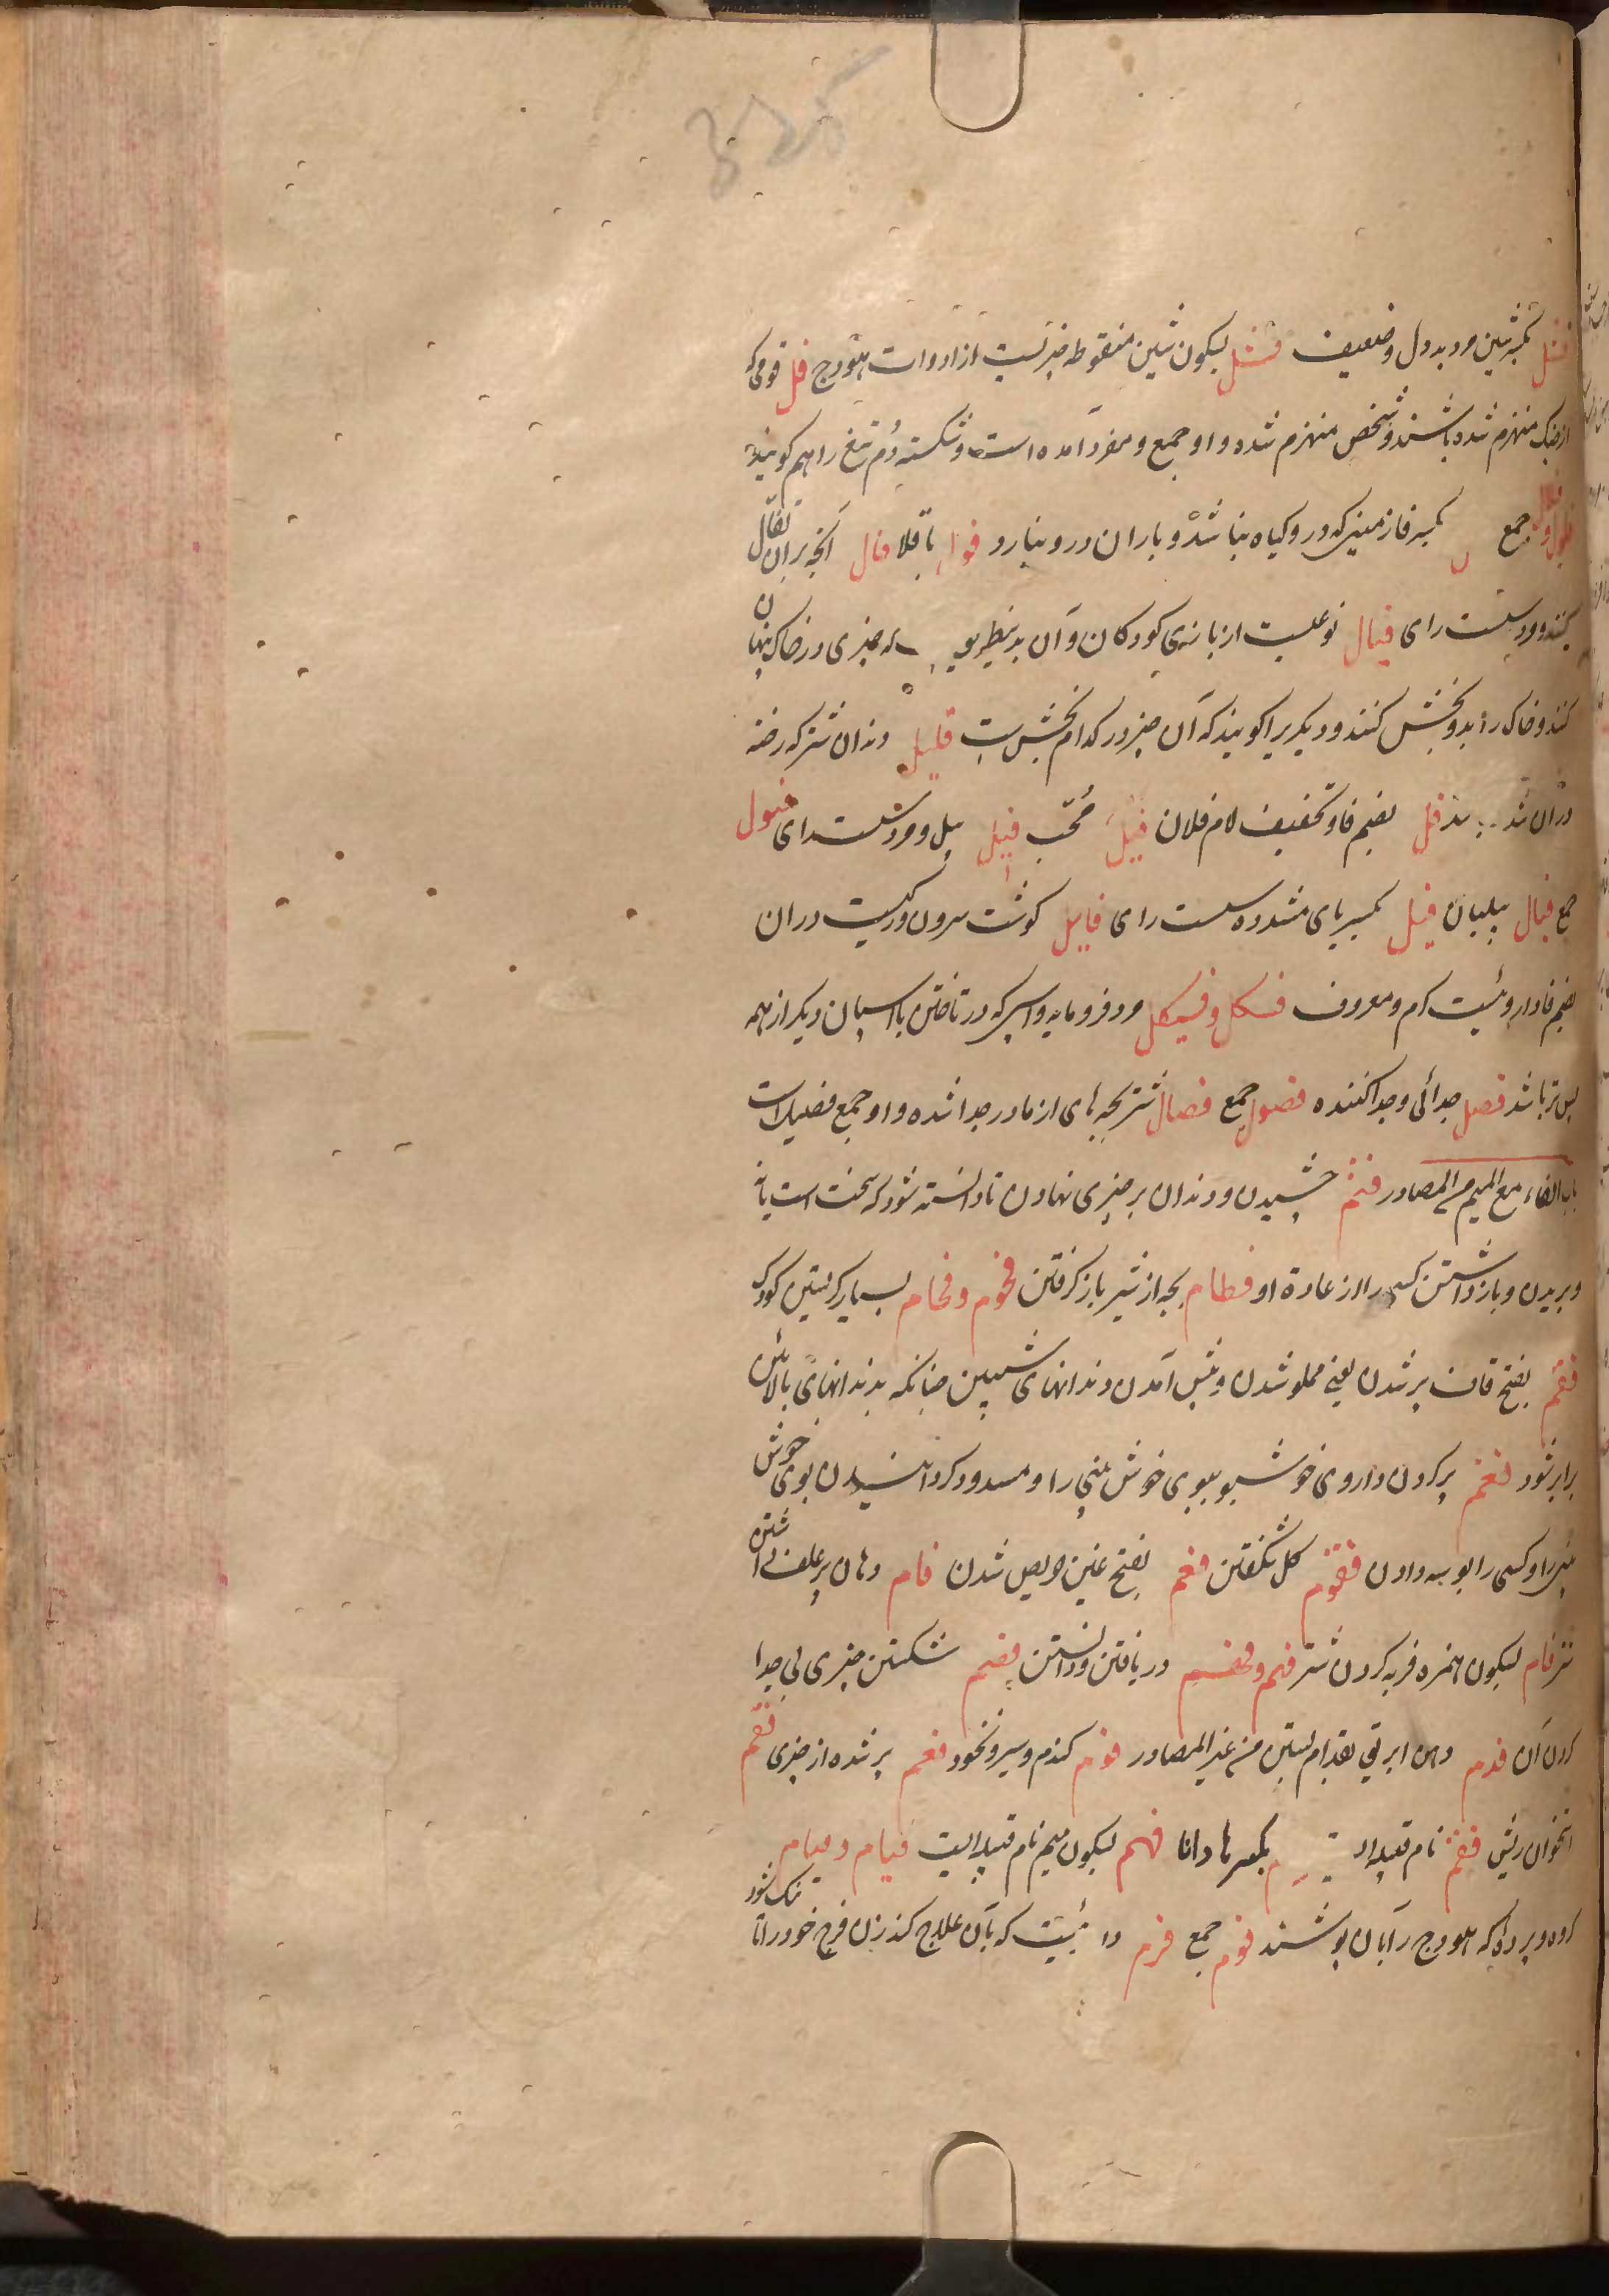 فشل بکسر شین مرد بددل و ضعیف فشل بسکون شین منقوطه چیزیست از ادوات هودج فل قومی که
از جنک منهزم شده باشند و شخص منهزم شده و او جمع و مفرد آمده است و شکسته دُم تیغ را هم کویند
فلول و فلال جمع بکسر فا زمینی که درو کیاه نباشد و باران درو نبارد فول باقلا فال آنچه بران تفأل
کنند و سست رای فیال نوعیست از بازی کودکان و آن بدینطریق که چیزی در خاک پنهان
کنند و خاک را بدو بخش کنند و دیکریرا کویند که آن چیز در کدام بخش است فلیل دندان شتر که رخنه
دران شد فل بضم فا و تخفیف لام فلان فیل محب فیل پیل و مرد سست رای فیول
جمع فیال پیلبان فیل بکسر یای مشدده سست رای فایل کوشت سرون و رکیست دران
بضم فا داروئیست ام و معروف فسکل و فسیکل مرد فرومایه و اسپی که در تاختن با اسپان دیکر از همه
پس تر باشد فصل جدائی و جدا کننده فصول جمع فصال شتر بچه های از مادر جدا شده و او جمع فصیل است
باب الفاء مع المیم من المصادر فغم چشیدن و دندان بر چیزی نهادن تا دانسته شود که سخت است یا نه
و بریدن و باز داشتن کسی را از عادة او فطام بچه از شیر باز کرفتن فحوم و فحام بسیار کریستن کودک
فقم بفتح قاف پر شدن یعنی مملو شدن و پیش آمدن دندانهای پیشین چنانکه بدندانهای بالائین
برابر نشود فغم پر کردن داروی خوشبو ببوی خوش بینی را و مسدود کردانیدن بوی خوش
بینی را و کسی را بوسه دادن فغوم کل شکفتن فغم بفتح غین حریص شدن فام دهان پر علف
شتر فام بسکون همزه فربه کردن شتر فهم و تفهیم دریافتن و دانستن فصم شکستن چیزی بی جدا
کردن آن فدم دهن ابریق بفدام بستن من غیر المصادر فوم کندم و سیر و نخود فعم پر شده از چیزی فقم
استخوان ریش فقم نام قبیله بکسر ها دانا فهم بسکون میم نام قبیله ایست فیام و فیام
کروه و پرده که هودج را بان پوشند فوم جمع فرم دا ئیست که بآن علاج کند زن فرج خود را تا تنک شود